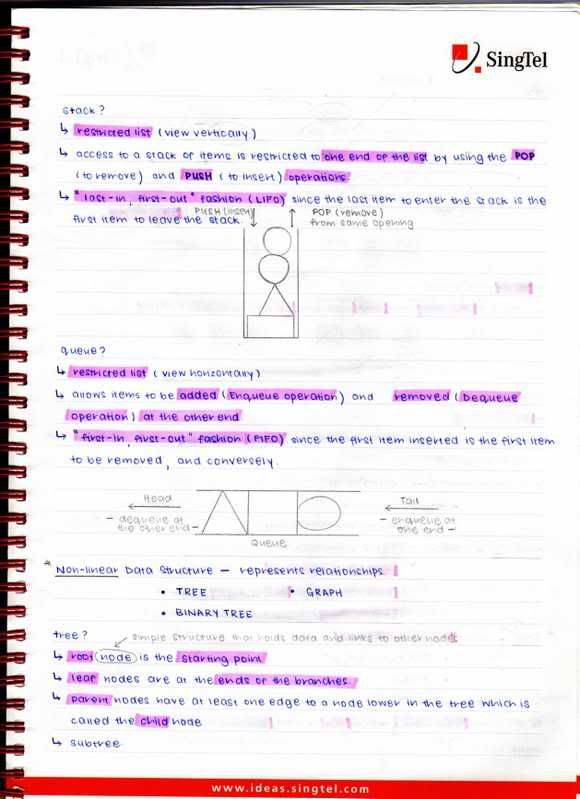 SingTel
stack?
↳ restricted list (view vertically)
↳ access to a stack of items is restricted to one end of the list by using the POP
(to remove) and PUSH (to insert) operations.
↳ "last-in, first-out" fashion (LIFO) since the last item to enter the stack is the
first item to leave the stack.
PUSH (insert)
POP (remove)
from same opening
queue?
↳ restricted list (view horizontally)
↳ allows items to be added (Enqueue operation) and removed (Dequeue
operation) at the other end
↳ "first-in, first-out" fashion (FIFO) since the first item inserted is the first item
to be removed, and conversely.
Head
- dequeue at
the other end -
Tail
- enqueue at
one end -
Queue
* Non-linear Data Structure - represents relationships
• TREE • GRAPH
• BINARY TREE
tree? simple structure that holds data and links to other nodes
↳ root node is the starting point
↳ leaf nodes are at the ends of the branches.
↳ parent nodes have at least one edge to a node lower in the tree which is
called the child node
↳ subtree
www.ideas.singtel.com